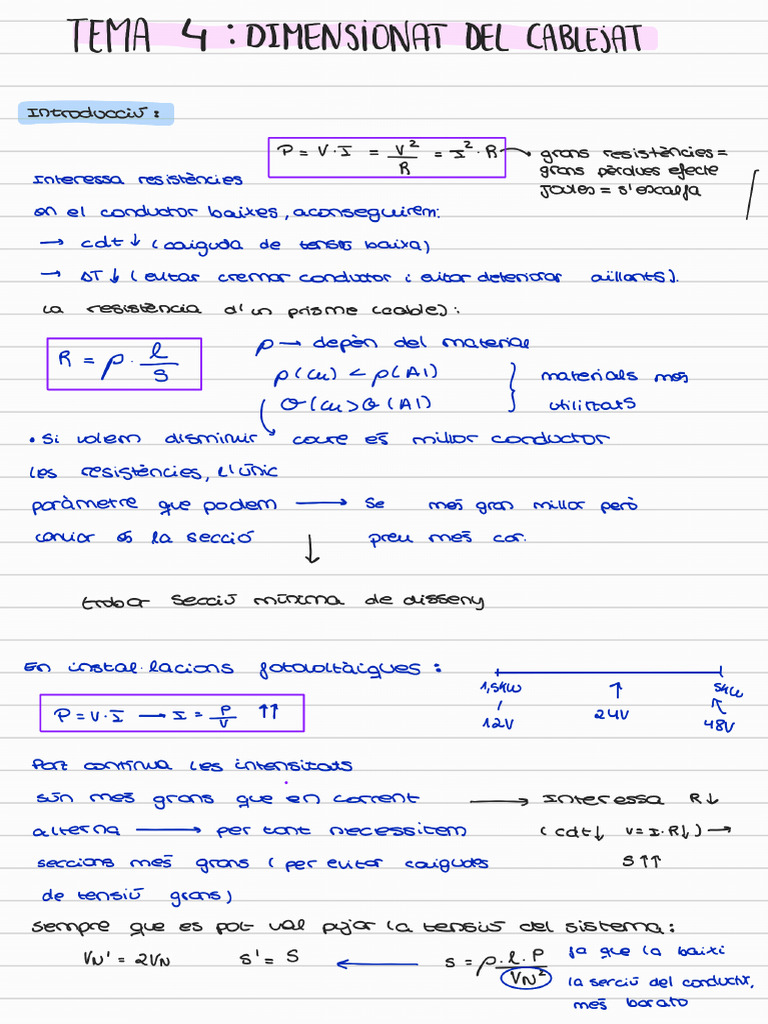 TEMA 4 : DIMENSIONAT DEL CABLEJAT
Introducció :
P = V · I = V²/R = I² · R → grans resistències =
grans pèrdues efecte
Joules = s'escalfa
Interessa resistències
en el conductor baixes, aconseguirem:
→ cdt ↓ (caiguda de tensió baixa)
→ ΔT ↓ (evitar cremar conductor i evitar deteriorar aïllants).
La resistència d'un prisme (cable):
R = ρ · l/S
ρ → depèn del material
ρ(Cu) < ρ(Al)
σ(Cu) > σ(Al)
} materials més
utilitzats
• Si volem disminuir
coure és millor conductor
les resistències, l'únic
paràmetre que podem → Se més gran millor però
canviar és la secció ↓ preu més car.
trobar secció mínima de disseny
En instal·lacions fotovoltàiques :
1,5kW 5kW
12V 24V 48V
P = V · I → I = P/V ↑↑
Part contínua les intensitats
són més grans que en corrent → Interessa R↓
alterna → per tant necessitem (cdt↓ V = I · R↓) →
seccions més grans (per evitar caigudes S↑↑
de tensió grans)
Sempre que es pot val pujar la tensió del sistema:
VN' = 2VN S' = S ← S = ρ · l · P / VN² ja que la baixi
la secció del conductor,
més barato